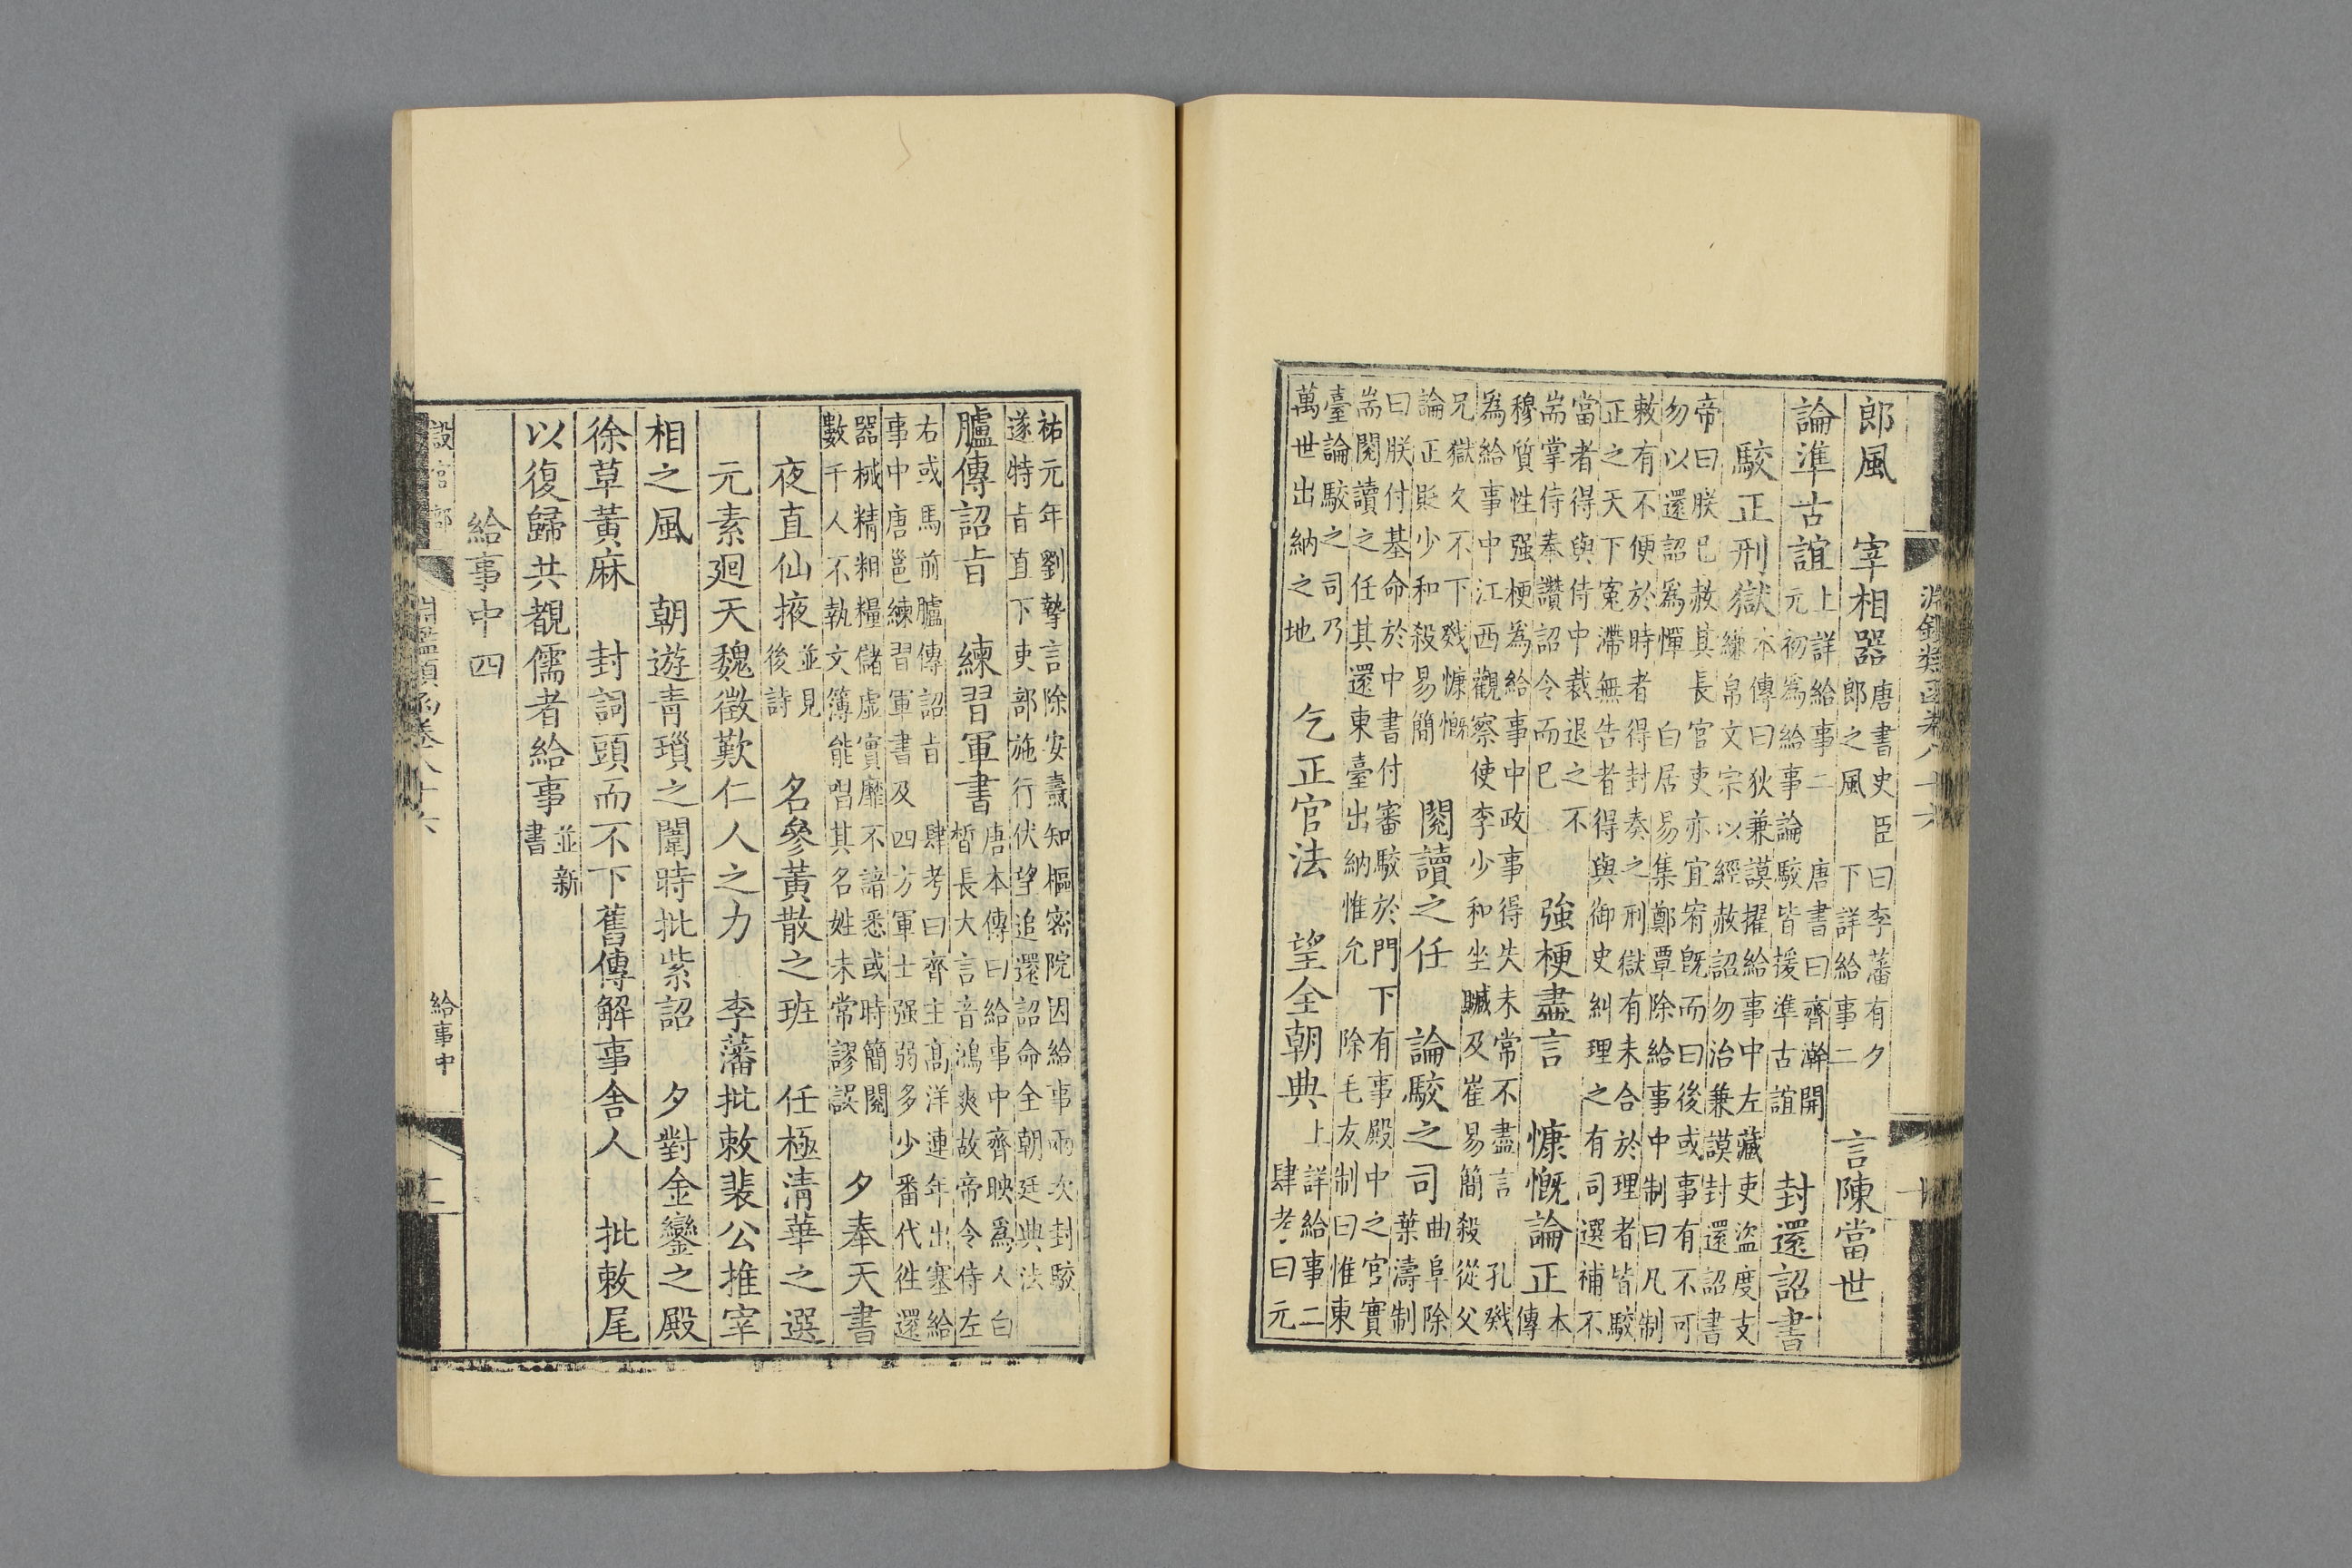 淵鑑類函卷八十六
郎風　宰相器　唐書史臣曰李藩有夕
郎之風　下詳給事二　言陳當世
論準古誼　上詳給事二　唐書曰齊澣開
元初爲給事論駮皆援準古誼　封還詔書
駮正刑獄　本傳曰狄兼謨擢給事中左藏吏盜度支
縑帛文宗以經赦詔勿治兼謨封還詔書
帝曰朕巳赦其長官吏亦宜宥旣而曰後或事有不可
勿以還詔爲憚　白居易集鄭覃除給事中制曰凡制
敕有不便於時者得封奏之刑獄有未合於理者皆駮
正之天下寃滯無告者得與御史糾理之有司選補不
當者得與侍中裁退之不
耑掌侍奉讚詔令而巳　強梗盡言　慷慨論正　本傳
穆質性强梗爲給事中政事得失未常不盡言　孔戣
爲給事中江西觀察使李少和坐贓及崔易簡殺從父
兄獄久不下戣慷慨
論正貶少和殺易簡　閱讀之任　論駮之司　曲阜除
葉濤制
曰朕付基命於中書付審駮於門下有事殿中之官實
耑閱讀之任其還東臺出納惟允　除毛友制曰惟東
臺論駮之司乃
萬世出納之地　乞正官法　望全朝典　上詳給事二
肆考曰元
祐元年劉摯言除安燾知樞密院因給事兩次封駮
遂特旨直下吏部施行伏望追還詔命全朝廷典法
臚傳詔旨　練習軍書　唐本傳曰給事中齊映爲人白
晳長大言音鴻爽故帝令侍左
右或馬前臚傳詔旨　肆考曰齊主高洋連年出塞給
事中唐邕練習軍書及四方軍士强弱多少番代徃還
器械精粗糧儲虛實靡不諳悉或時簡閱
數千人不執文簿能唱其名姓未常謬誤　夕奉天書
夜直仙掖　並見後詩　名參黃散之班　任極清華之選
元素廻天魏徵歎仁人之力　李藩批敕裴公推宰
相之風　朝遊青瑣之闈時批紫詔　夕對金鑾之殿
徐草黃麻　封詞頭而不下舊傳解事舍人　批敕尾
以復歸共覩儒者給事　並新書
給事中四
設官部
淵鑑類函卷八十六
給事中